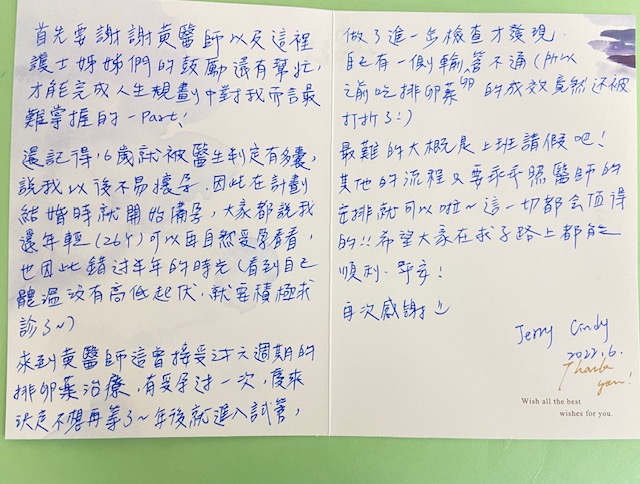 首先要謝謝黃醫師以及這裡
護士姊姊們的鼓勵還有幫忙,
才能完成人生規劃中對我而言最
難掌握的一Part!
還記得16歲就被醫生判定有多囊,
說我以後不易懷孕.因此在計劃
結婚時就開始備孕,大家都說我
還年輕(26Y)可以再自然受孕看看,
也因此錯过半年的時光(看到自己
體溫沒有高低起伏,就要積極求
診了~)
來到黃醫師這曾接受过六週期的
排卵藥治療,有受孕过一次,後來
決定不想再等了~年後就進入試管,
做了進一步檢查才發現
自己有一側輸卵管不通(所以
之前吃排卵藥的成效竟然还被
打折了!)
最難的大概是上班請假吧!
其他的流程只要乖乖照醫師的
安排就可以啦~這一切都会值得
的!!希望大家在求子路上都能
順利.平安!
再次感謝
Jerry Cindy
2022.6.
Thank
you!
Wish all the best
wishes for you.